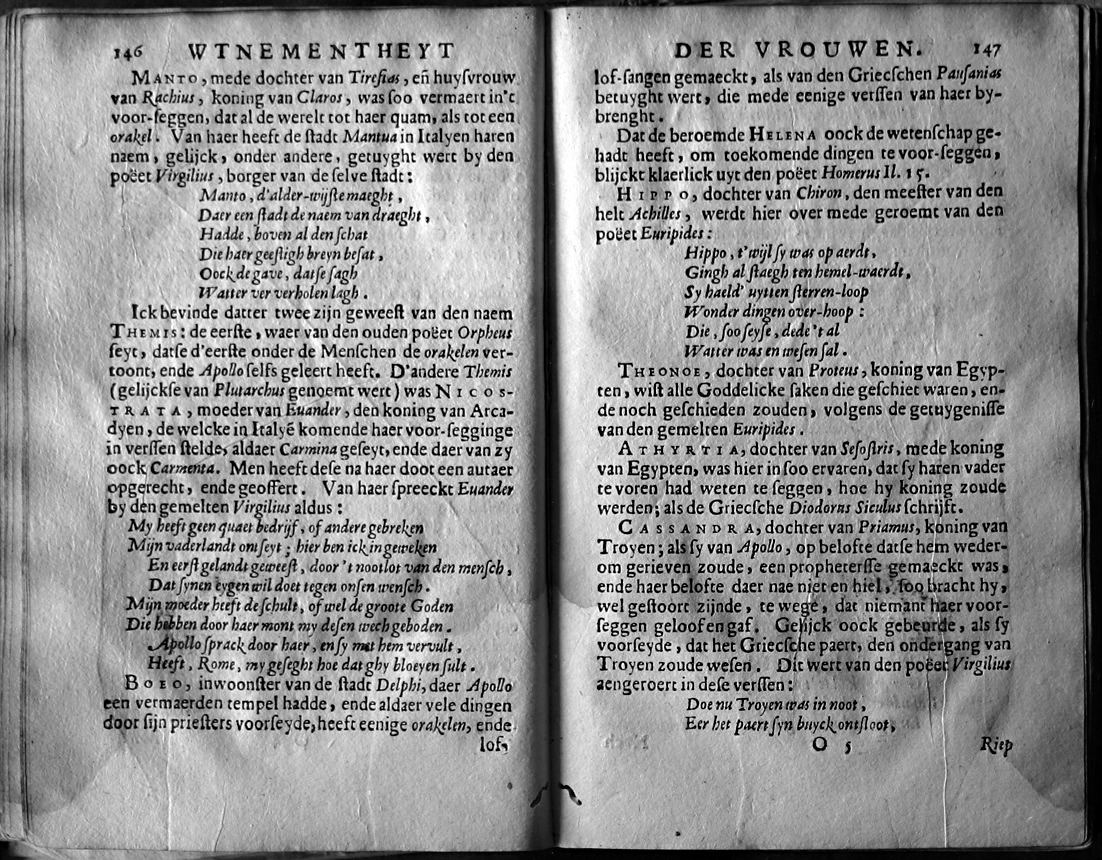 146 WTNEMENTHEYT
MANTO, mede dochter van Tireſias, en̄ huyſvrouw
van Rachius, koning van Claros, was ſoo vermaert in't
voor-ſeggen, dat al de werelt tot haer quam, als tot een
orakel. Van haer heeft de ſtadt Mantua in Italyen haren
naem, gelijck, onder andere, getuyght wert by den
poëet Virgilius, borger van de ſelve ſtadt:
Manto, d'alder-wijſte maeght,
Daer een ſtadt de naem van draeght,
Hadde, boven al den ſchat
Die haer geeſtigh breyn beſat,
Oock de gave, datſe ſagh
Watter ver verholen lagh.
Ick bevinde datter twee zijn geweeſt van den naem
THEMIS: de eerſte, waer van den ouden poëet Orpheus
ſeyt, datſe d'eerſte onder de Menſchen de orakelen ver-
toont, ende Apollo ſelfs geleert heeft. D'andere Themis
(gelijckſe van Plutarchus genoemt wert) was NICOS-
TRATA, moeder van Euander, den koning van Arca-
dyen, de welcke in Italyē komende haer voor-ſegginge
in verſſen ſtelde, aldaer Carmina geſeyt, ende daer van zy
oock Carmenta. Men heeft deſe na haer doot een autaer
opgerecht, ende geoffert. Van haer ſpreeckt Euander
by den gemelten Virgilius aldus:
My heeft geen quaet bedrijf, of andere gebreken
Mijn vaderlandt ontſeyt; hier ben ick ingeweken
En eerſt gelandt geweeſt, door 't nootlot van den menſch,
Dat ſynen eygen wil doet tegen onſen wenſch.
Mijn moeder heeft de ſchult, of wel de groote Goden
Die hebben door haer mont my deſen wech geboden.
Apollo ſprack door haer, en ſy met hem vervult,
Heeft, Rome, my geſeght hoe dat ghy bloeyen ſult.
BOEO, inwoonſter van de ſtadt Delphi, daer Apollo
een vermaerden tempel hadde, ende aldaer vele dingen
door ſijn prieſters voorſeyde, heeft eenige orakelen, ende
lof-
DER VROUWEN. 147
lof-ſangen gemaeckt, als van den Griecſchen Pauſanias
betuyght wert, die mede eenige verſſen van haer by-
brenght.
Dat de beroemde HELENA oock de wetenſchap ge-
hadt heeft, om toekomende dingen te voor-ſeggen,
blijckt klaerlick uyt den poëet Homerus Il. 15.
HIPPO, dochter van Chiron, den meeſter van den
helt Achilles, werdt hier over mede geroemt van den
poëet Euripides:
Hippo, t'wijl ſy was op aerdt,
Gingh al ſtaegh ten hemel-waerdt,
Sy haeld' uytten ſterren-loop
Wonder dingen over-hoop:
Die, ſoo ſeyſe, dede 't al
Watter was en weſen ſal.
THEONOE, dochter van Proteus, koning van Egyp-
ten, wiſt alle Goddelicke ſaken die geſchiet waren, en-
de noch geſchieden zouden, volgens de getuygeniſſe
van den gemelten Euripides.
ATHYRTIA, dochter van Seſoſtris, mede koning
van Egypten, was hier in ſoo ervaren, dat ſy haren vader
te voren had weten te ſeggen, hoe hy koning zoude
werden; als de Griecſche Diodorus Siculus ſchrijft.
CASSANDRA, dochter van Priamus, koning van
Troyen; als ſy van Apollo, op belofte datſe hem weder-
om gerieven zoude, een propheterſſe gemaeckt was,
ende haer belofte daer nae niet en hiel, ſoo bracht hy,
wel geſtoort zijnde, te wege, dat niemant haer voor-
ſeggen geloof en gaf. Gelijck oock gebeurde, als ſy
voorſeyde, dat het Griecſche paert, den ondergang van
Troyen zoude weſen. Dit wert van den poëet Virgilius
aengeroert in deſe verſſen:
Doe nu Troyen was in noot,
Eer het paert ſyn buyck ontſloot,
O 5 Riep